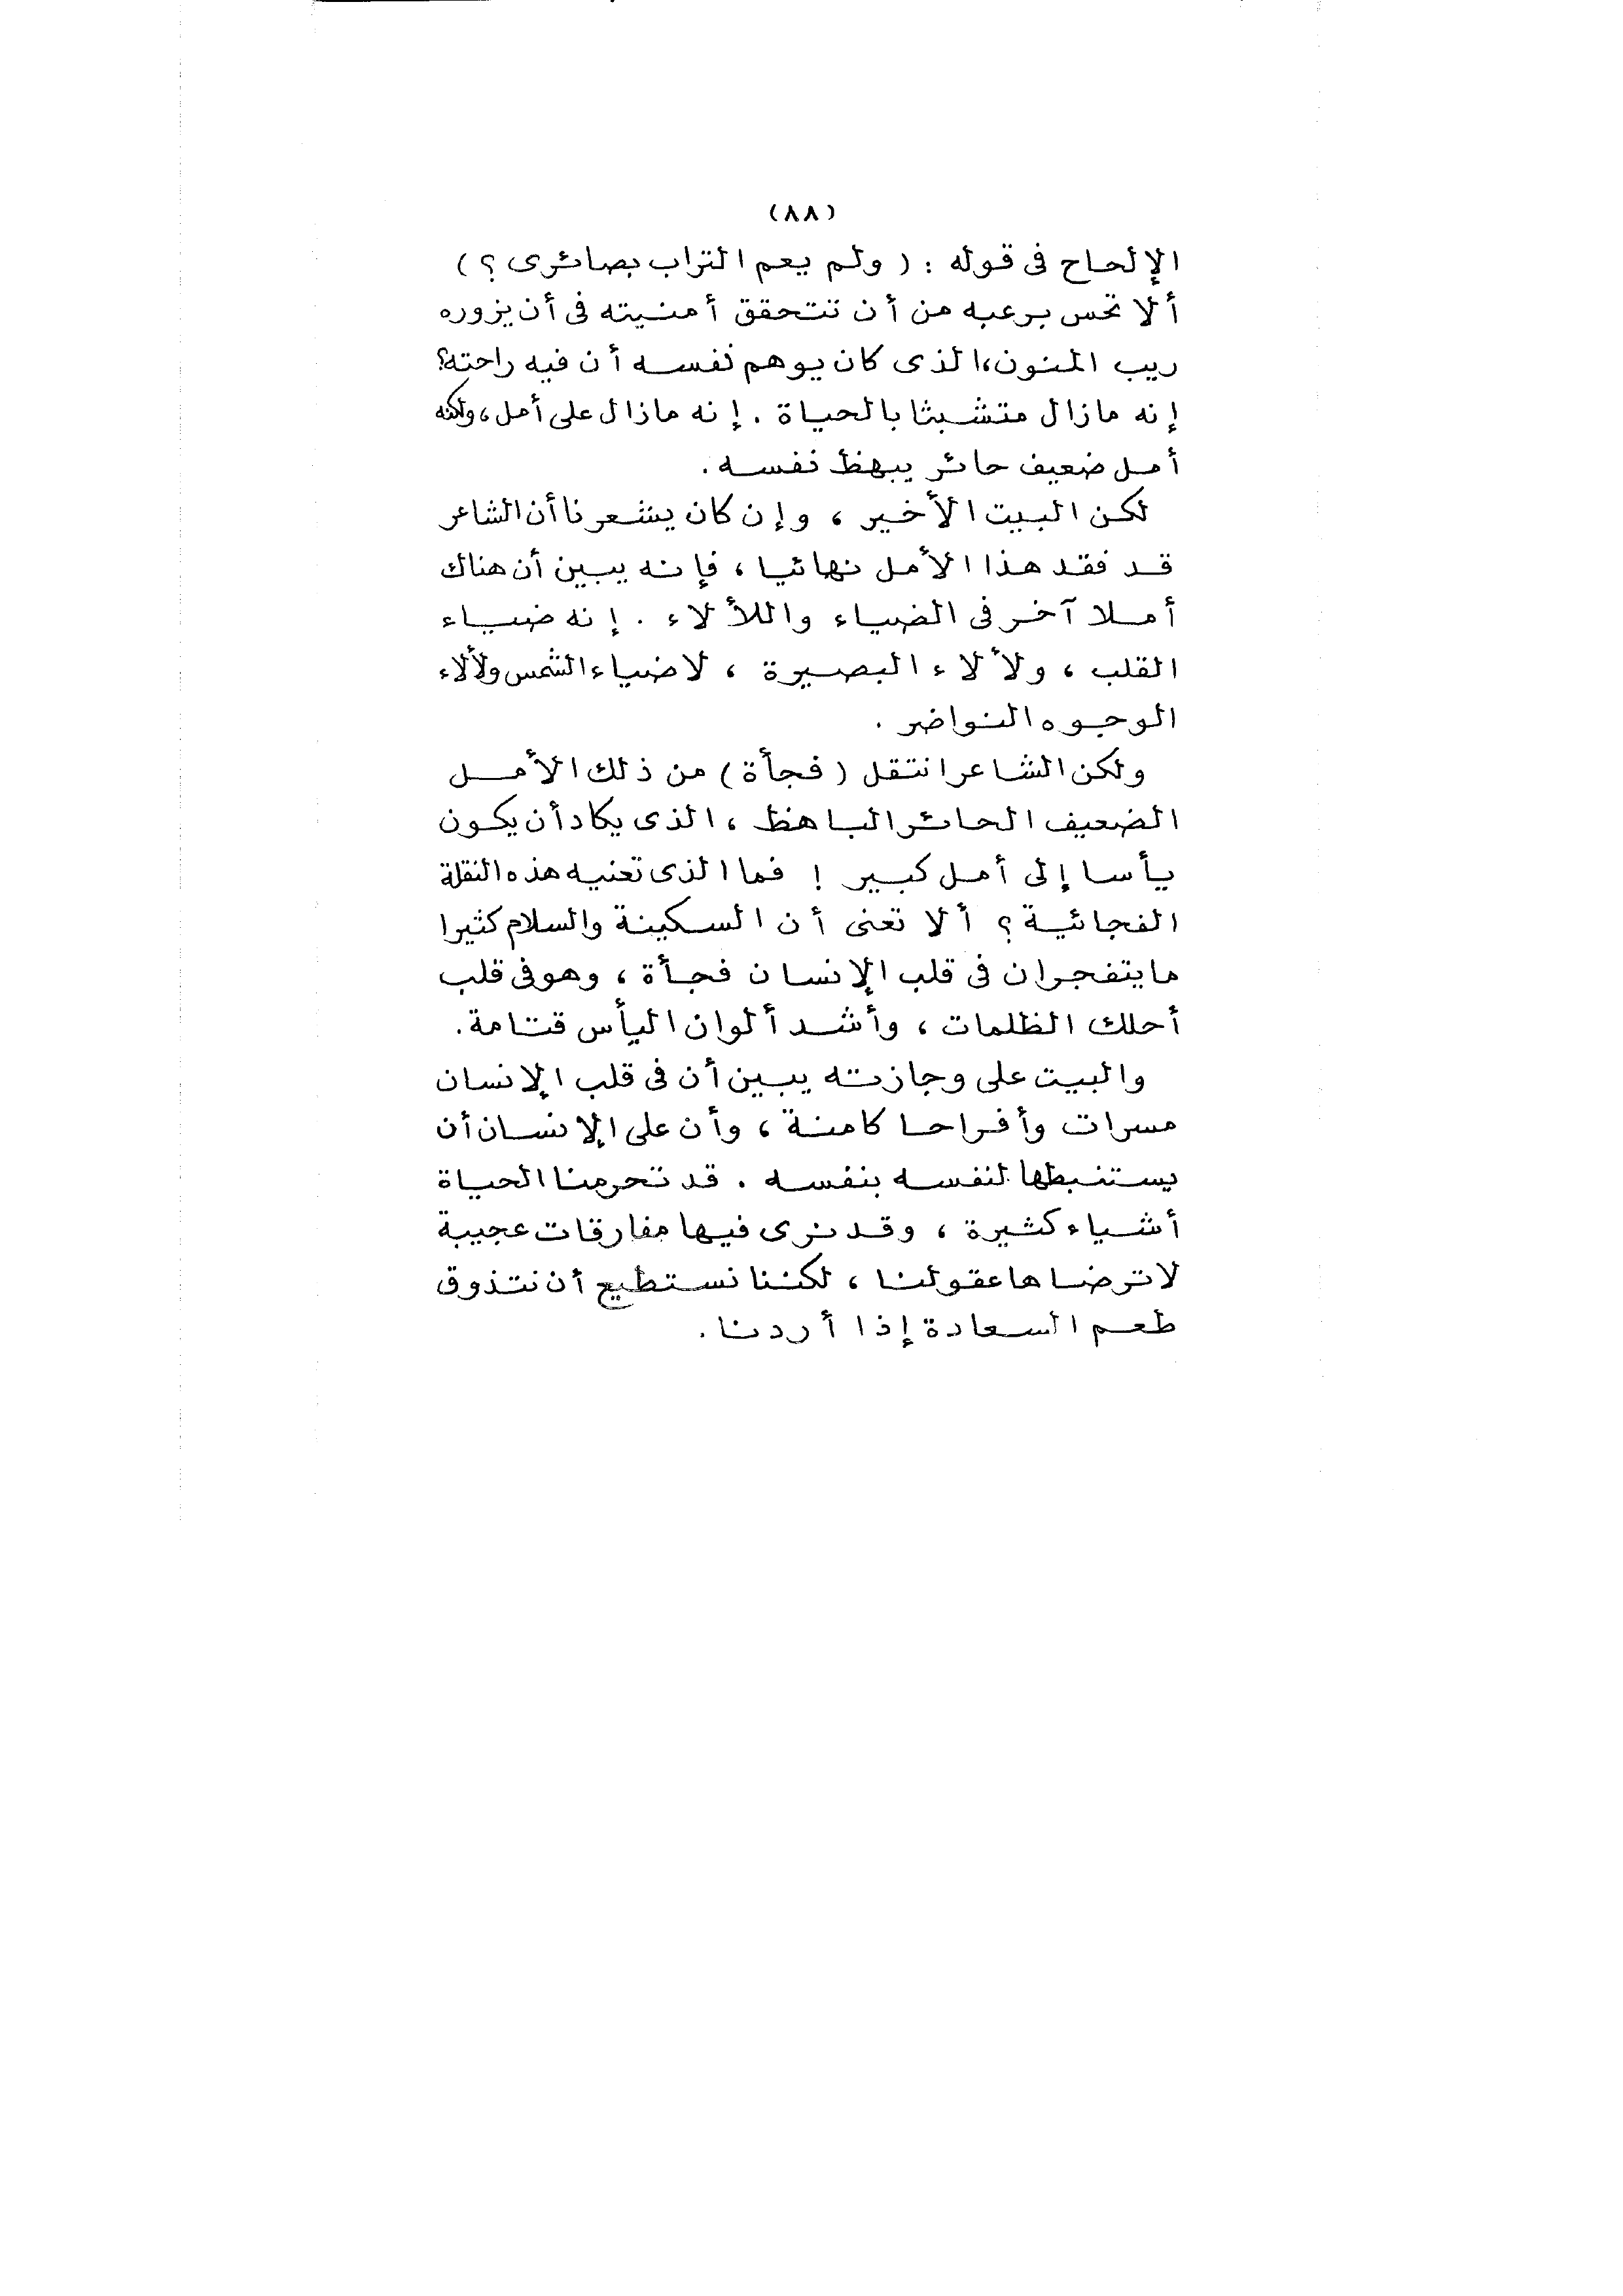 (٨٨)
الإلحاح فى قوله : ( ولم يعم التراب بصائرى ؟ )
ألا تحس برعبه من أن تتحقق أمنيته فى أن يزوره
ريب المنون، الذى كان يوهم نفسه أن فيه راحته؟
إنه مازال متشبثا بالحياة . إنه مازال على أمل ، ولكنه
أمل ضعيف حائر يبهظ نفسه .
لكن البيت الأخير ، وإن كان يشعرنا أن الشاعر
قد فقد هذا الأمل نهائيا ، فإنه يبين أن هناك
أملا آخر فى الضياء واللألاء . إنه ضياء
القلب ، ولألاء البصيرة ، لا ضياء الشمس ولألاء
الوجوه النواضر .
ولكن الشاعر انتقل ( فجأة ) من ذلك الأمل
الضعيف الحائر الباهظ ، الذى يكاد أن يكون
يأسا إلى أمل كبير ! فما الذى تعنيه هذه النقلة
الفجائية ؟ ألا تعنى أن السكينة والسلام كثيرا
ما يتفجران فى قلب الإنسان فجأة ، وهو فى قلب
أحلك الظلمات ، وأشد ألوان اليأس قتامة .
والبيت على وجازته يبين أن فى قلب الإنسان
مسرات وأفراحا كامنة ، وأن على الإنسان أن
يستنبطها لنفسه بنفسه . قد تحرمنا الحياة
أشياء كثيرة ، وقد نرى فيها مفارقات عجيبة
لا ترضاها عقولنا ، لكننا نستطيع أن نتذوق
طعم السعادة إذا أردنا .